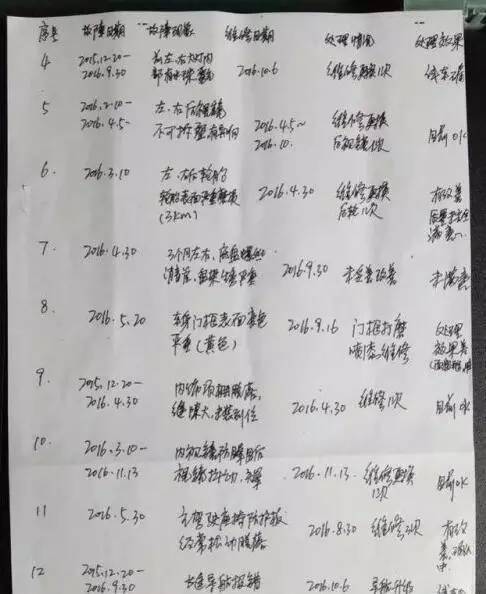 序号 故障日期 故障现象 维修日期 处理情况 处理效果
4 2015.12.20— 前左、右大灯内
2016.9.30 都有水珠 2016.10.6 维修更换1次
5 2016.2.10— 左、右后视镜
2016.4.5— 不可折叠有异响 2016.4.5~ 维修更换 目前OK
2016.10. 后视镜1次
6. 2016.3.10 左、右后轮胎
轮胎表面严重磨损 2016.4.30 维修更换 有改善
(3km) 后轮1次
7. 2016.4.30 3个月左右,底盘螺丝
2016.9.30 未完善改善 未满意
8. 2016.5.20 车身门框表面变色 2016.9.16 门框打磨 处理
严重(黄色) 喷漆维修 效果差
9. 2015.12.20—
2016.4.30 缝隙大,未装到位 2016.4.30 维修1次 目前OK
10. 2016.3.10— 内视镜防眩目后
2016.11.13 视镜抖动, 2016.11.13. 维修更换 目前OK
1次
11 2016.5.30 主驾驶座椅防护板 2016.8.30 维修2次 有改
经常松动脱落
中.
12 2015.12.20— 导航报错 2016.10.6 导航升级
2016.9.30